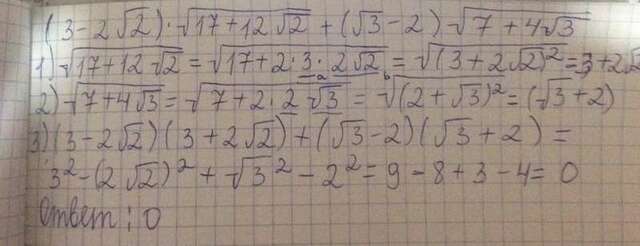 (3-2√2)·√17+12√2+(√3-2)√7+4√3
1)√17+12√2=√17+2·3·2√2=√(3+2√2)²=3+2√2
a b
2)√7+4√3=√7+2·2√3=√(2+√3)²=(√3+2)
3)(3-2√2)(3+2√2)+(√3-2)(√3+2)=
3²-(2√2)²+√3²-2²=9-8+3-4=0
Ответ: 0